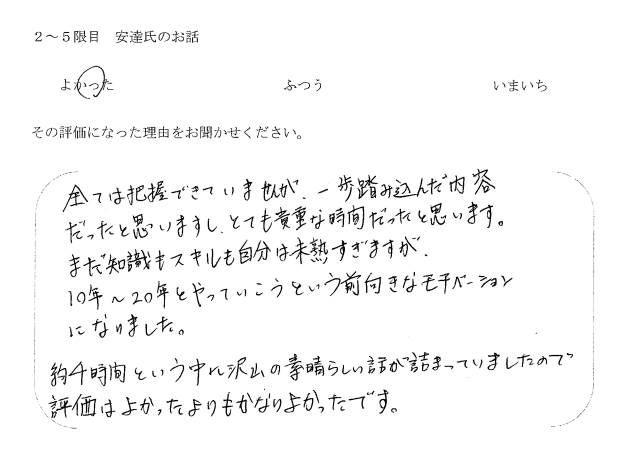 2～5限目　安達氏のお話
よかった　ふつう　いまいち
その評価になった理由をお聞かせください。
全ては把握できていませんが、一歩踏み込んだ内容
だったと思いますし、とても貴重な時間だったと思います。
まだ知識もスキルも自分は未熟すぎますが、
10年～20年とやっていこうという前向きなモチベーション
になりました。
約4時間という中に沢山の素晴らしい話が詰まっていましたので
評価はよかったよりもかなりよかったです。